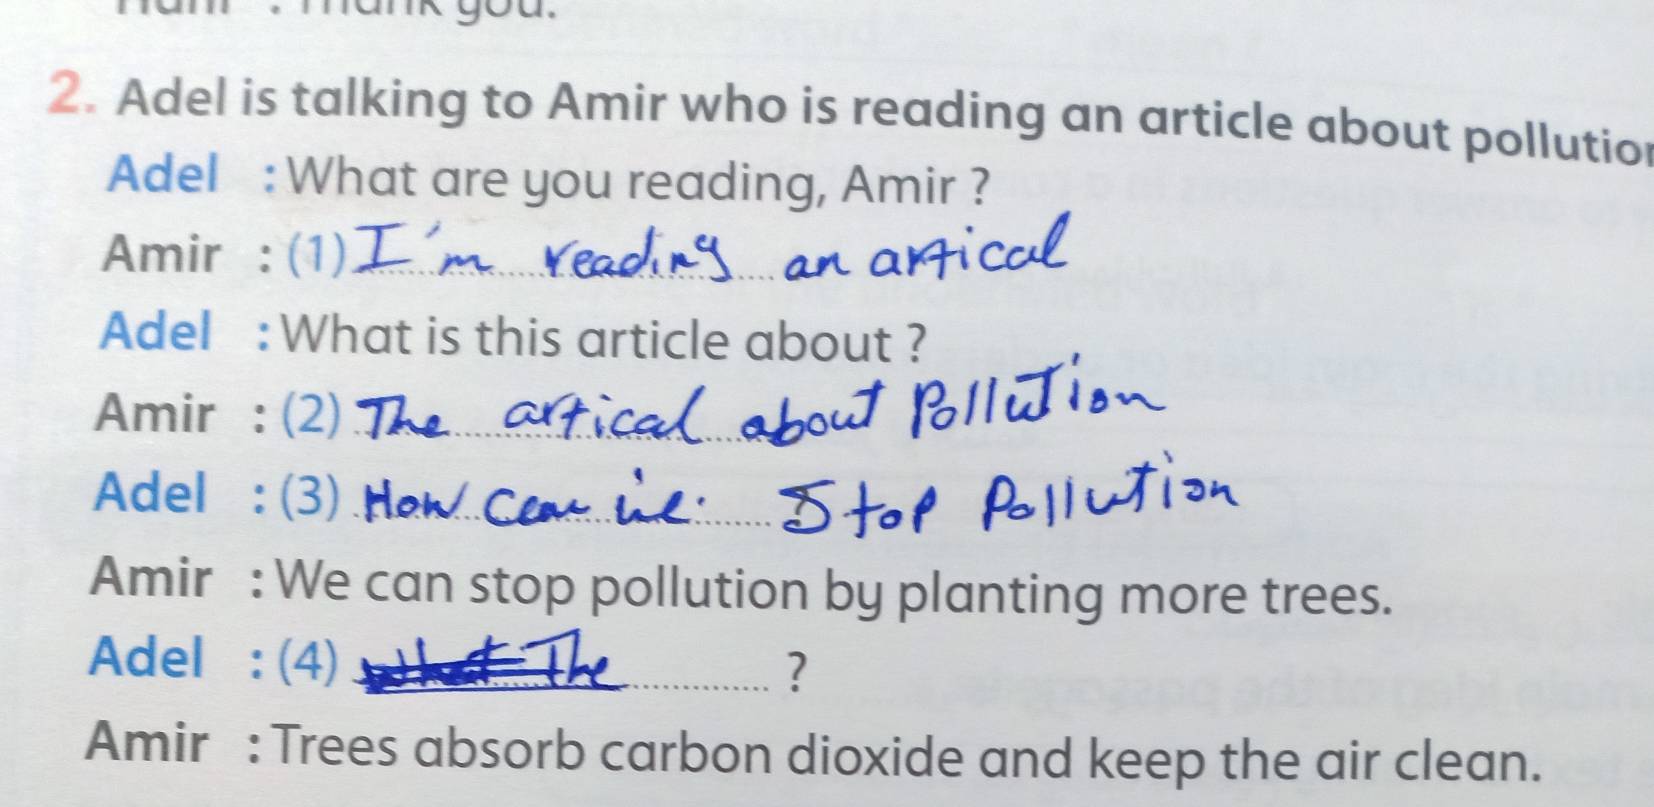 thank you.
2. Adel is talking to Amir who is reading an article about pollution
Adel : What are you reading, Amir ?
Amir : (1) I'm reading an artical
Adel : What is this article about ?
Amir : (2) The artical about Pollution
Adel : (3) How can we Stop Pollution
Amir : We can stop pollution by planting more trees.
Adel : (4) The ?
Amir : Trees absorb carbon dioxide and keep the air clean.